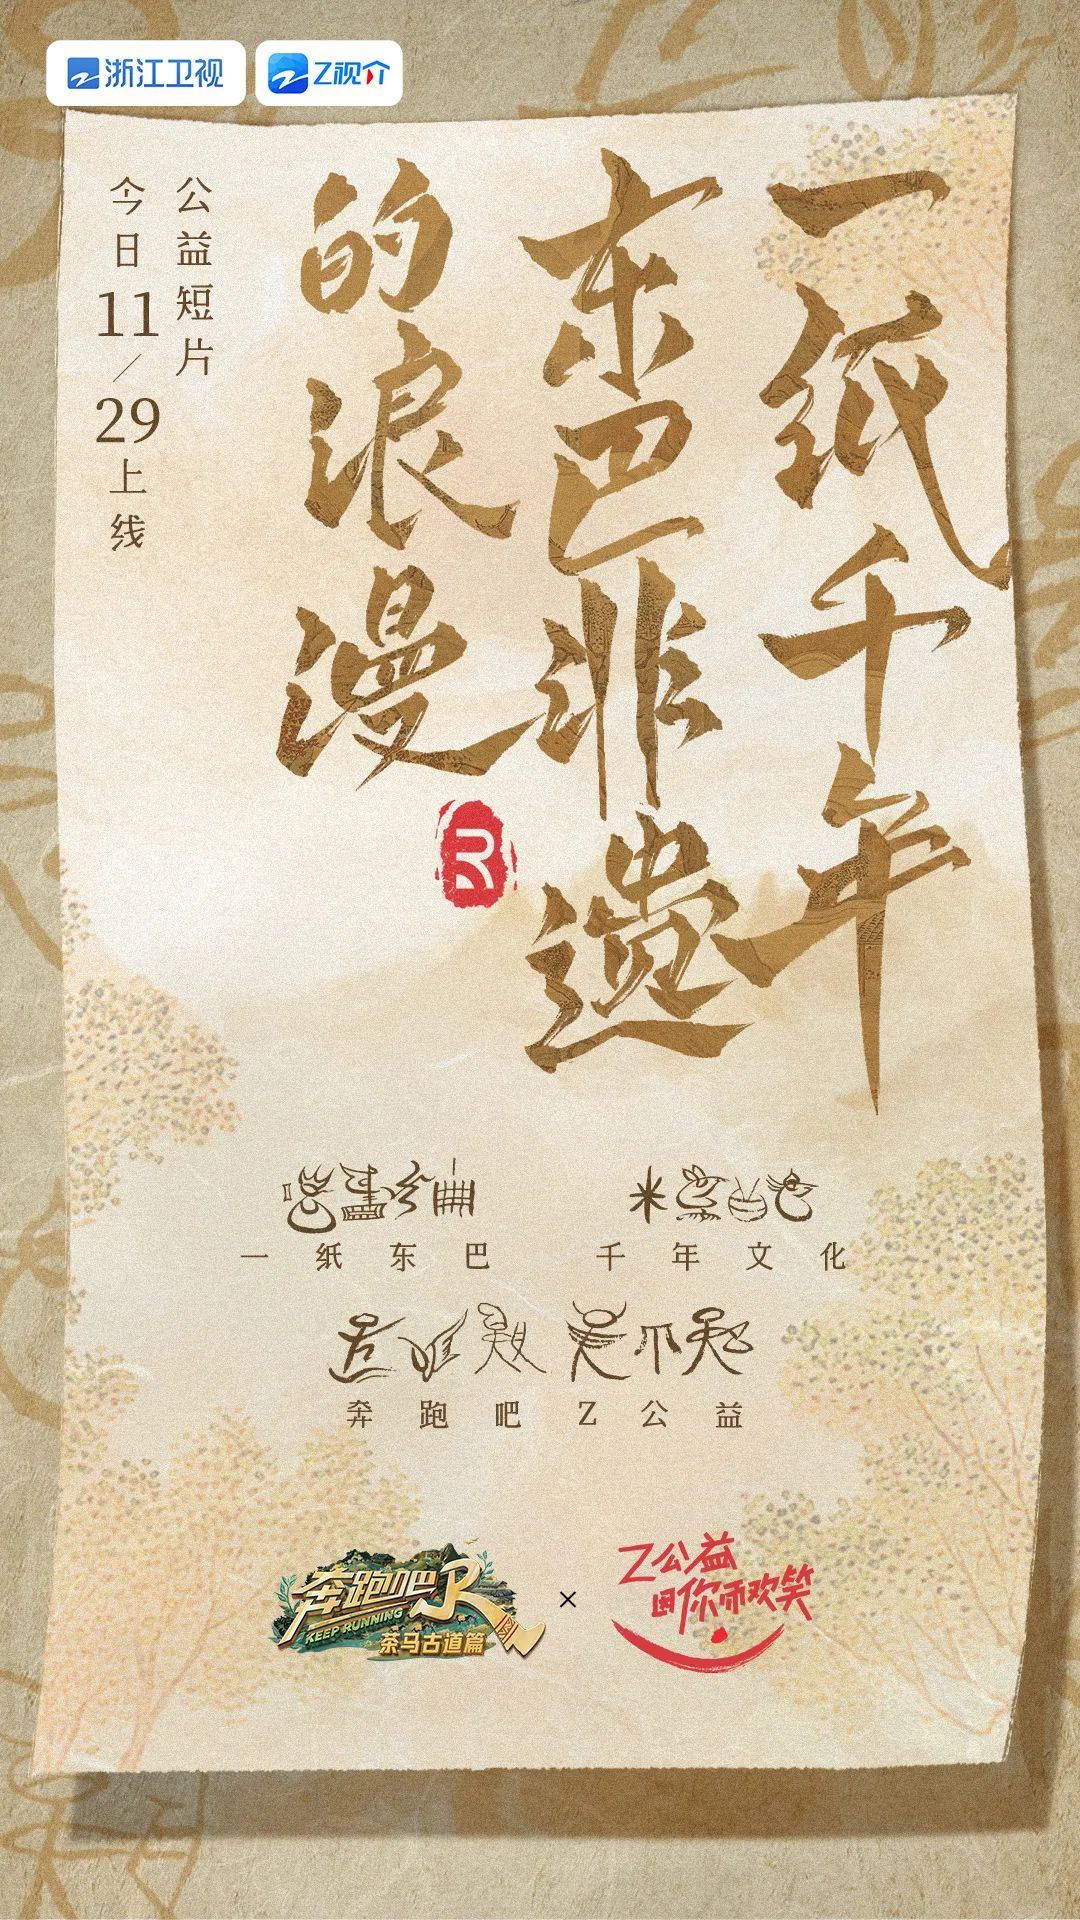 浙江卫视
Z视介
一纸千年
东巴非遗
的浪漫
公益短片
今日11/29上线
一纸东巴 千年文化
奔跑吧Z公益
奔跑吧
KEEP RUNNING
茶马古道篇
×
Z公益
因你而欢笑